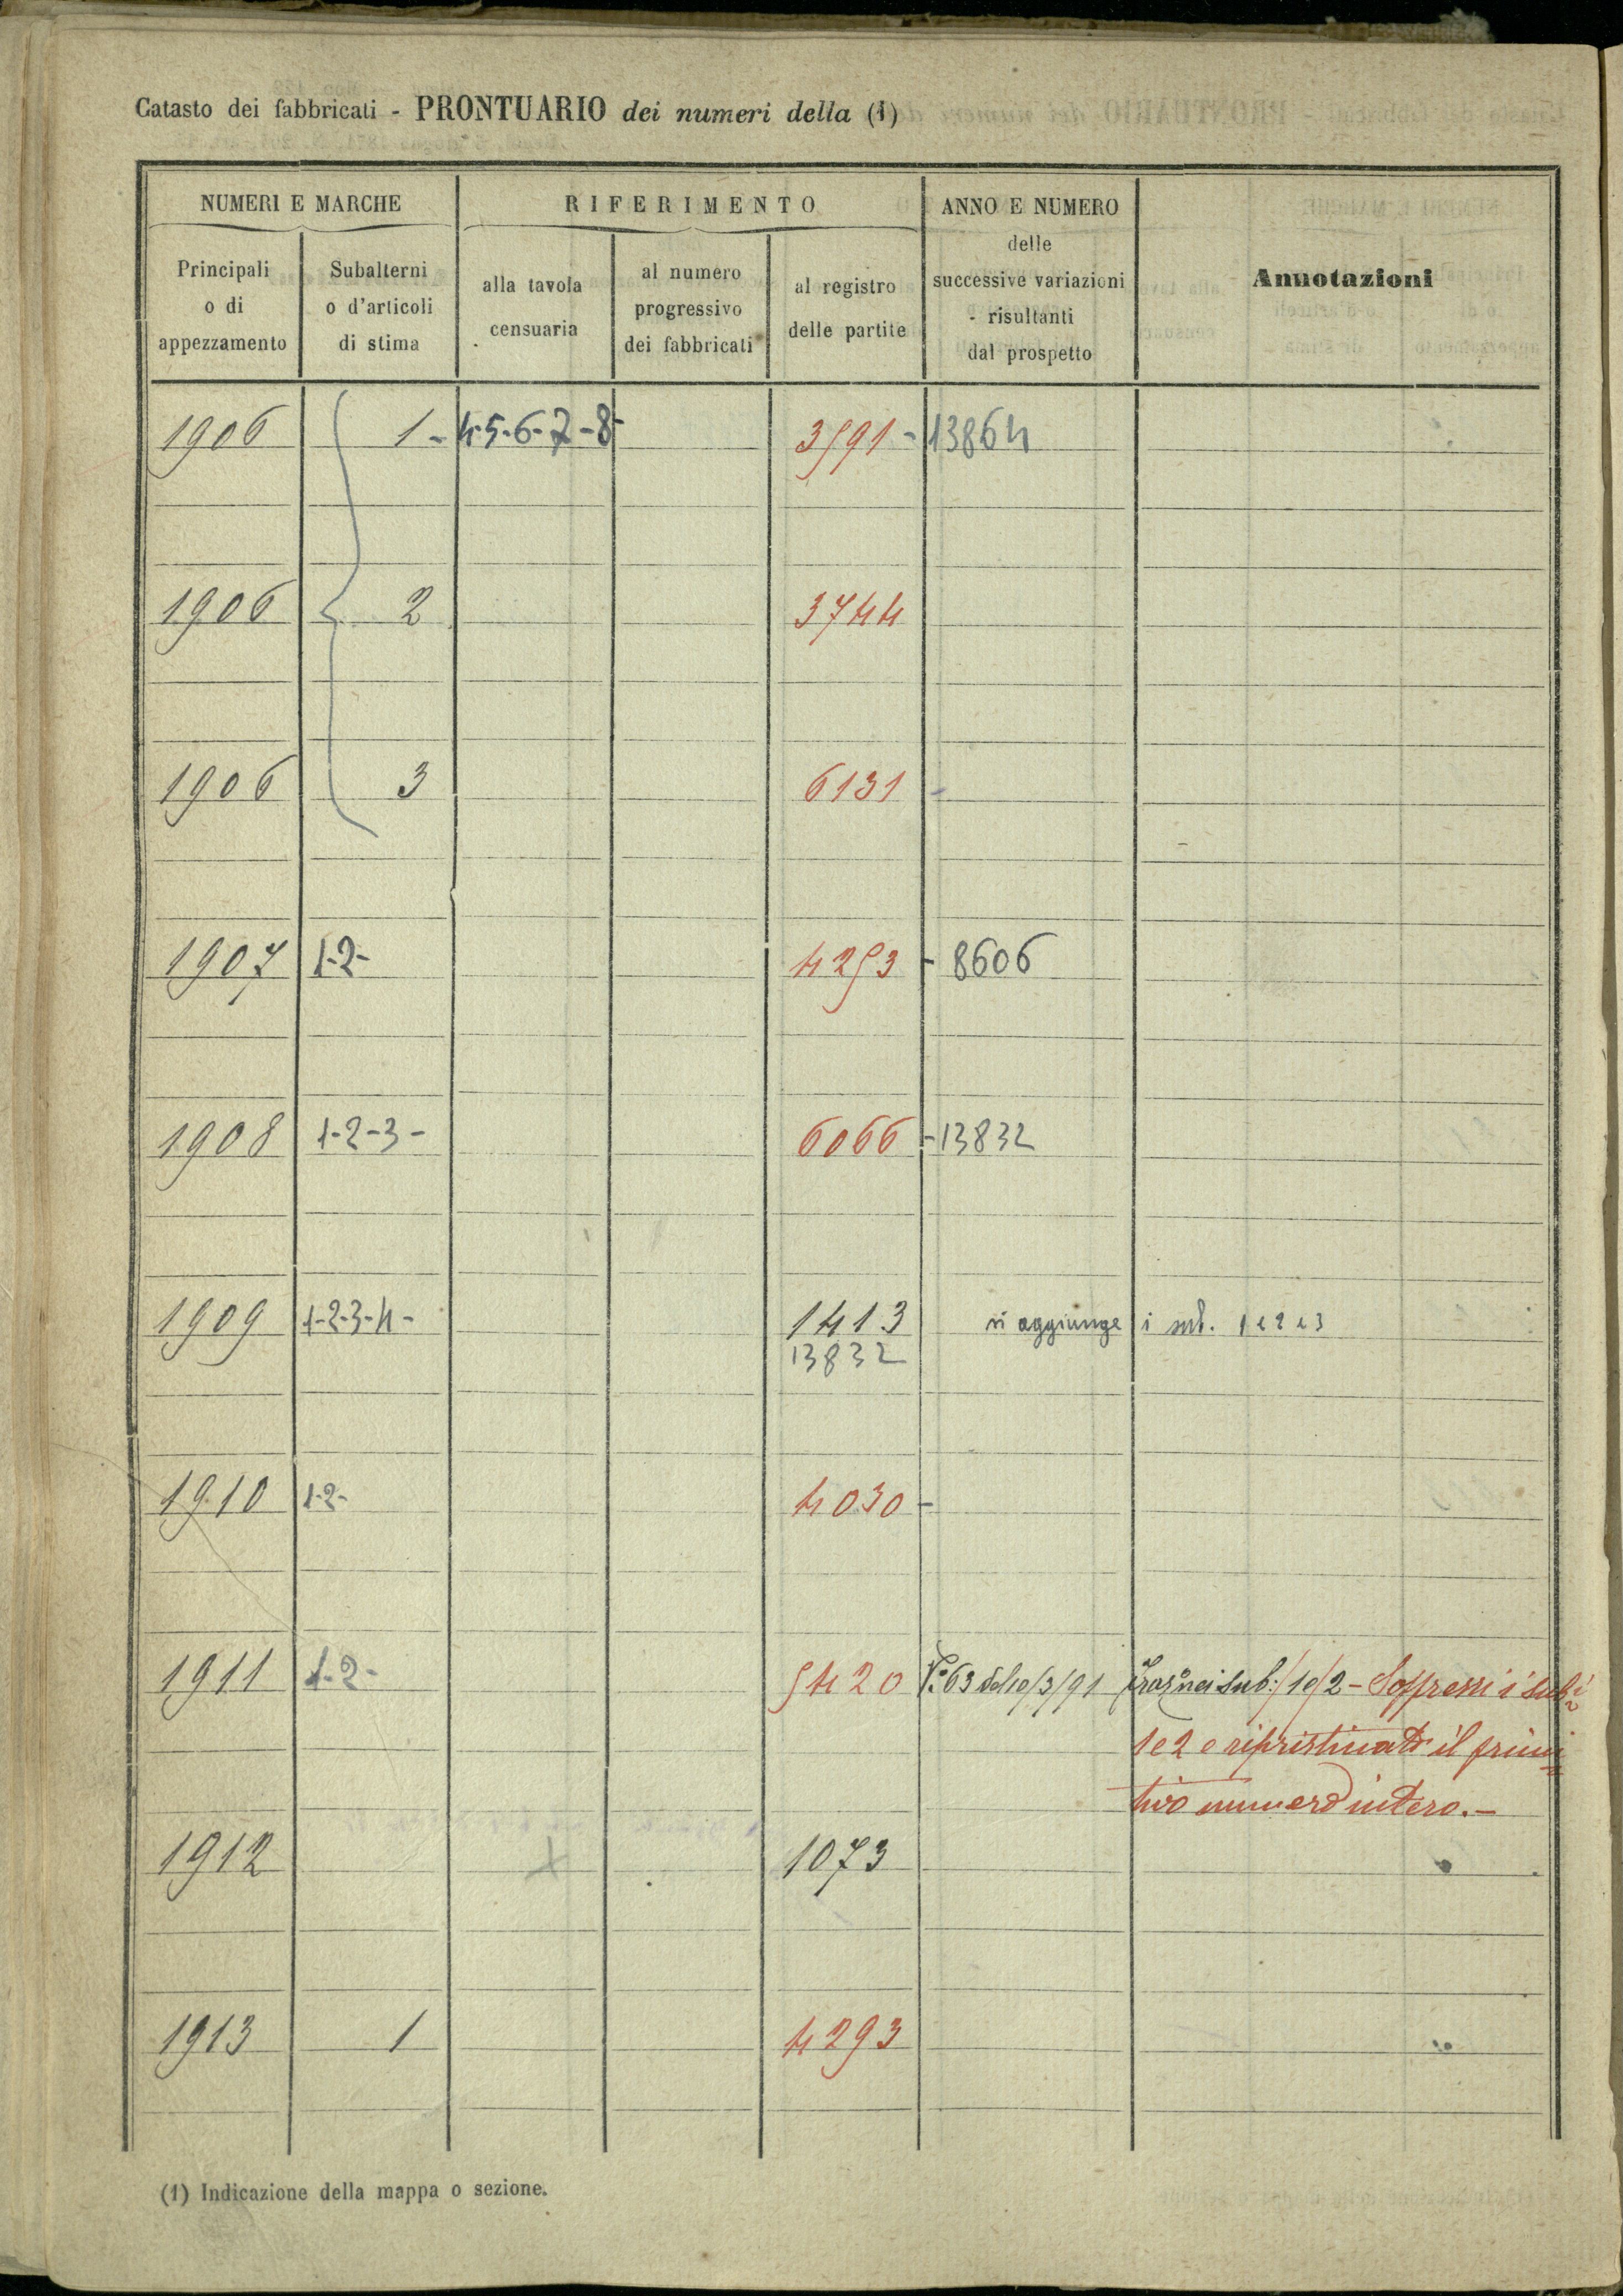 Catasto dei fabbricati - PRONTUARIO dei numeri della (1)
NUMERI E MARCHE
RIFERIMENTO
ANNO E NUMERO
delle
successive variazioni
risultanti
dal prospetto
Annotazioni
Principali
o di
appezzamento
Subalterni
o d'articoli
di stima
alla tavola
censuaria
al numero
progressivo
dei fabbricati
al registro
delle partite
1906 1- 4-5-6-7-8- 3591- 13864
1906 2 3744
1906 3 6131 -
1907 1-2- 4253 - 8606
1908 1-2-3- 6066 - 13832
1909 1-2-3-4- 1413 si aggiunge i sub. 1 e 2 e 3
13832
1910 1-2- 4030 -
1911 1-2- 5420 63 del 10/3/91 nei sub: 1 e 2 - Soppressi i sub:
1 e 2 e ripristinato il primi
tivo numero intero.-
1912 1073
1913 1 4293
(1) Indicazione della mappa o sezione.